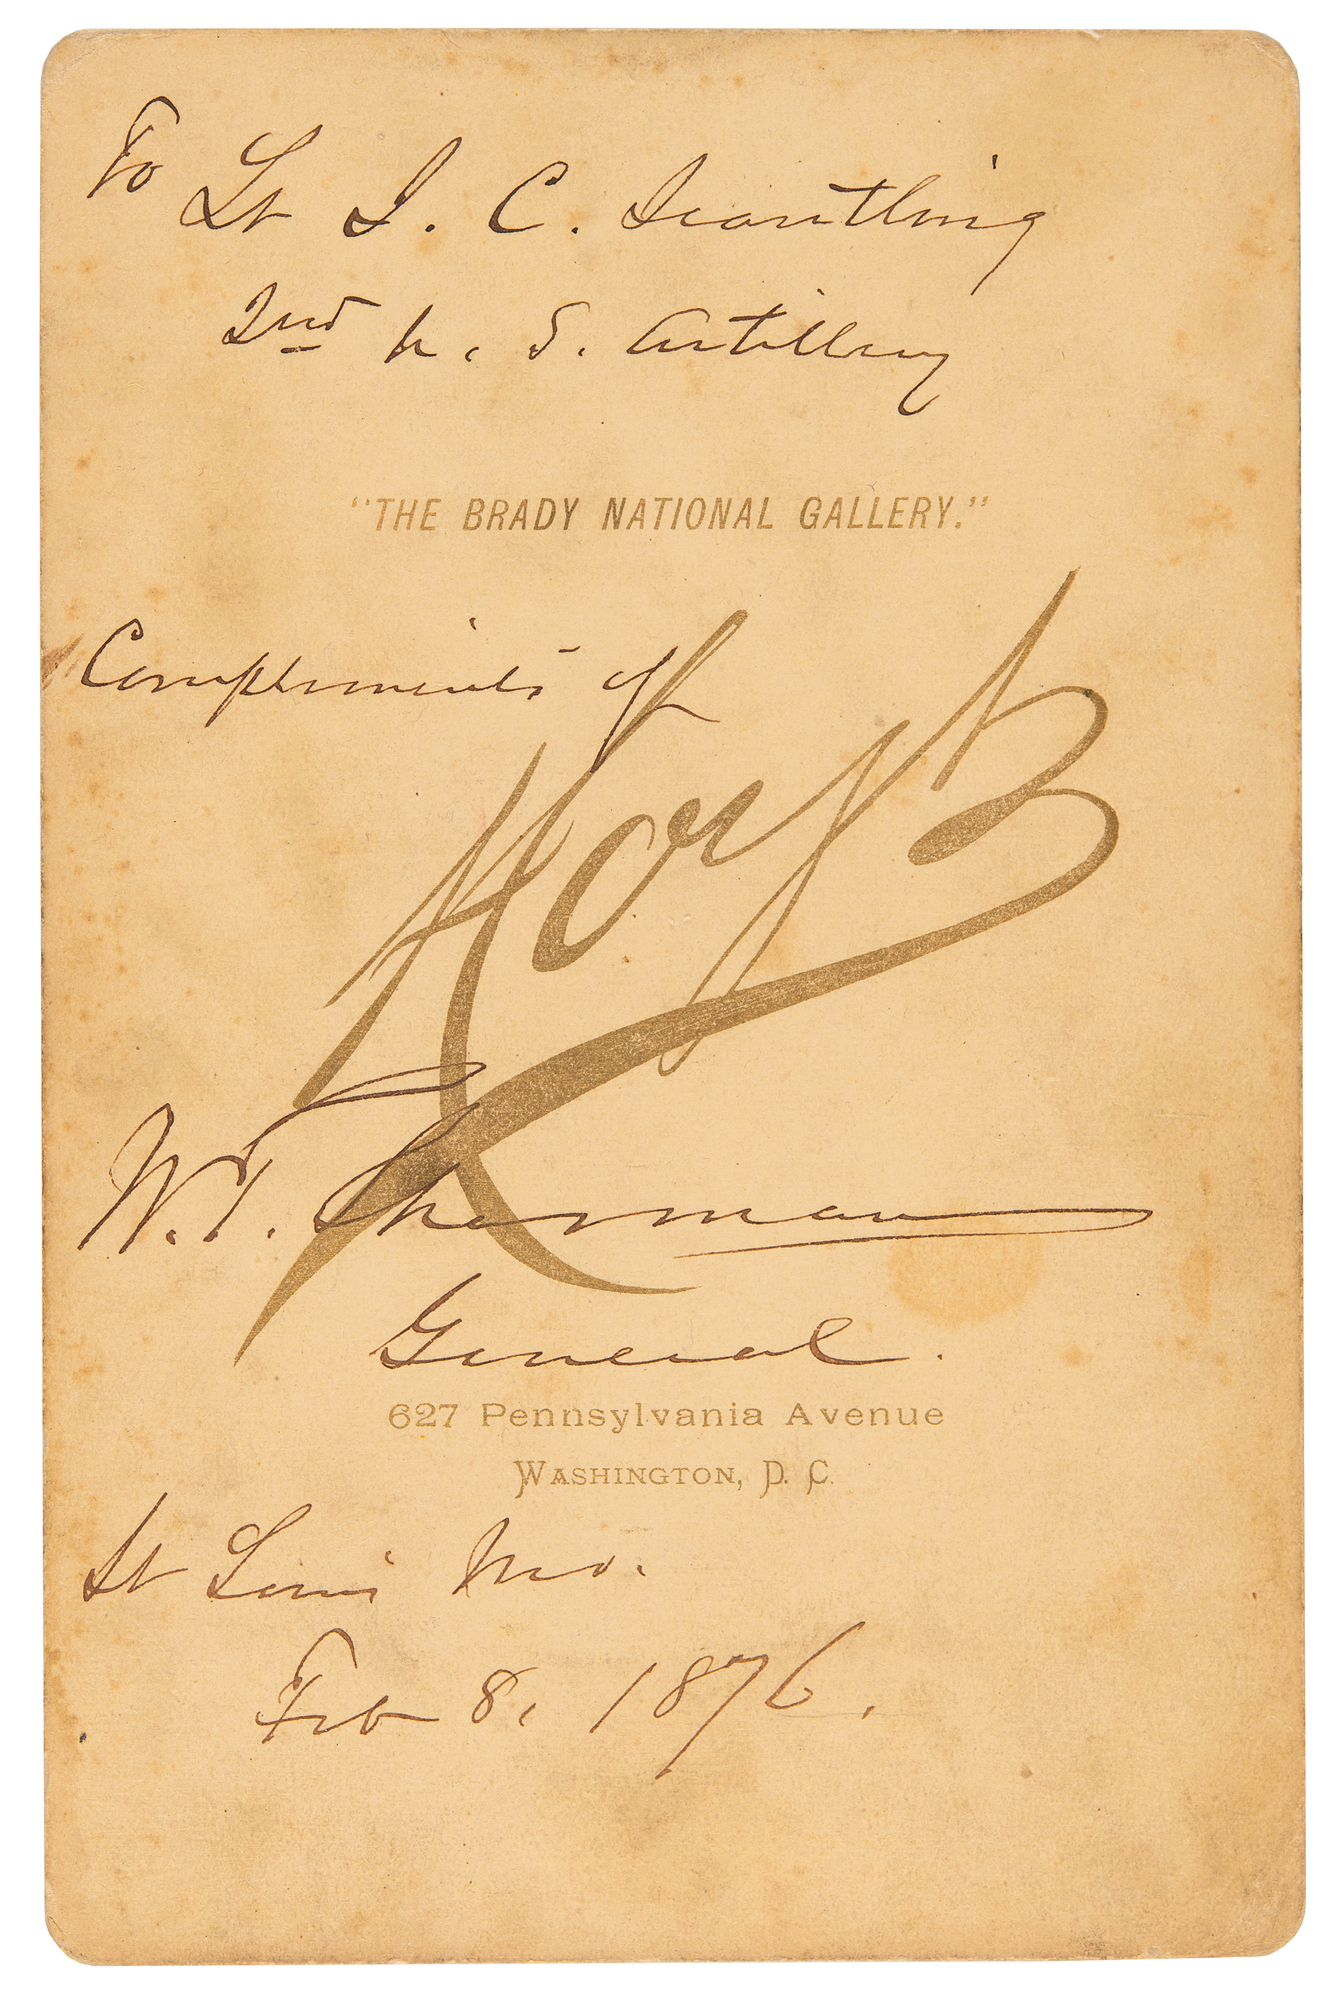 To Lt S. C. Scantling
2nd U. S. Artillery
"THE BRADY NATIONAL GALLERY."
Compliments of
W. T. Sherman
General.
627 Pennsylvania Avenue
WASHINGTON, D. C.
St Louis Mo.
Feb 8, 1876.